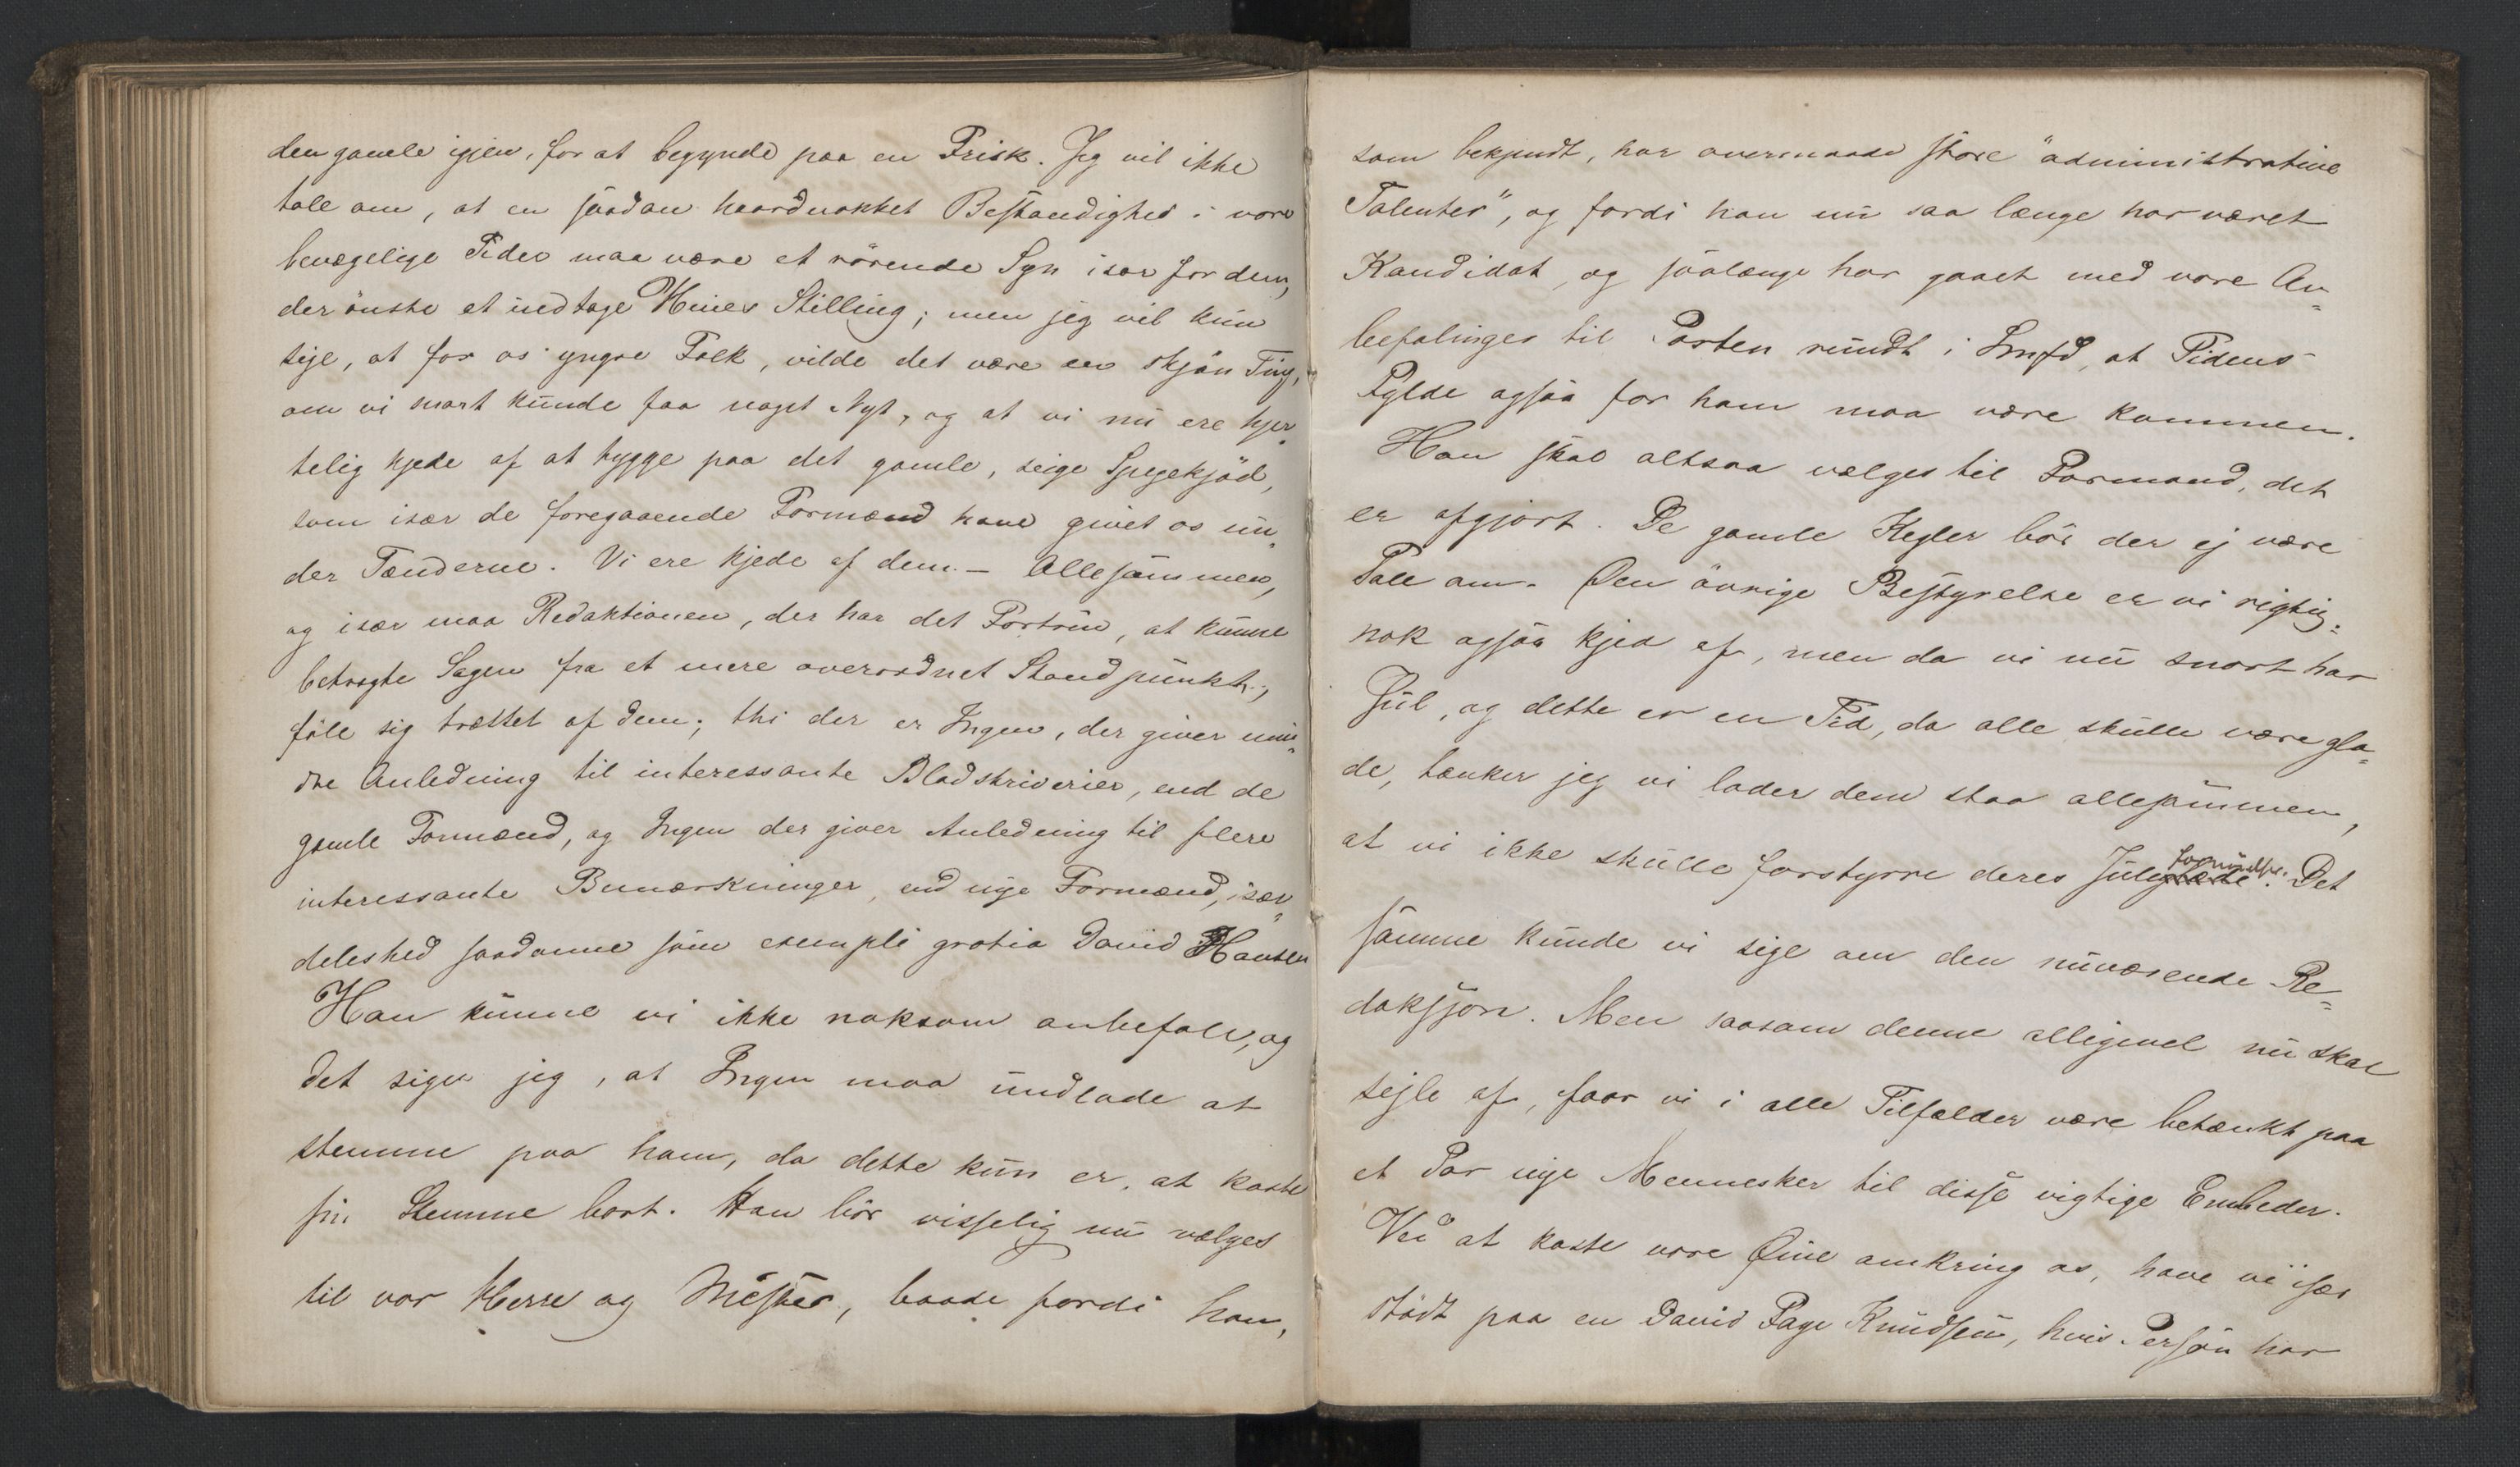 den gamle igjen, for at begynde paa en Frisk. Jeg vil ikke
tale om, at en saadan haardnakket Bestandighed i vore
bevægelige Tider maa være et rörende Syn især for dem,
der önske at indtage Hines Stilling; men jeg vil kun
sige, at for os yngre Folk, vilde det være en skjön Ting,
om vi snart kunde faa noget Nyt, og at vi nu ere hjer„
telig kjede af at tygge paa det gamle, seige Spegekjöd,
som især de foregaaende Formænd have givet os un„
der Tænderne. Vi ere kjede af dem. – Allesammen,
og især maa Redaktionen, der har det Fortrin, at kunne
betragte Sagen fra et mere overordnet Standpunkt,
föle sig trættet af dem; thi der er Ingen, der giver min„
dre Anledning til interessante Bladskriverier, end de
gamle Formænd, og Ingen der giver Anledning til flere
interessante Bemærkninger, end nye Formænd, især„
deleshed saadanne som exempli gratia David Hansen
Han kunne vi ikke noksom anbefale, og
det siger jeg, at Ingen maa undlade at
stemme paa ham, da dette kun er, at kaste
sin Stemme bort. Han bör visselig nu vælges
til vor Herre og Mester, baade fordi han,
som bekjendt, har overmaade store "administrative
Talenter", og fordi han nu saa længe har været
Kandidat, og saalænge har gaaet med vore An„
befalinger til Posten rundt i Smfd, at Tidens
Fylde ogsaa for ham maa være kommen.
Han skal altsaa vælges til Formand, det
er afgjort. De gamle Kegler bör der ej være
Tale om. Den övrige Bestyrelse er vi rigtig„
nok ogsaa kjed af, men da vi nu snart har
Jul, og dette er en Tid, da alle skulle være gla„
de, tænker jeg vi lader dem staa allesammen,
at vi ikke skulle forstyrre deres Juleglæde fornöielse. Det
samme kunde vi sige om den nuværende Re„
daksjon. Men saasom denne alligevel nu skal
sejle af, faar vi i alle Tilfælder være betænkt paa
et Par nye Mennesker til disse vigtige Embeder.
Ved at kaste vore Øine omkring os, have vi især
stödt paa en David Page Knudsen, hvis Person har